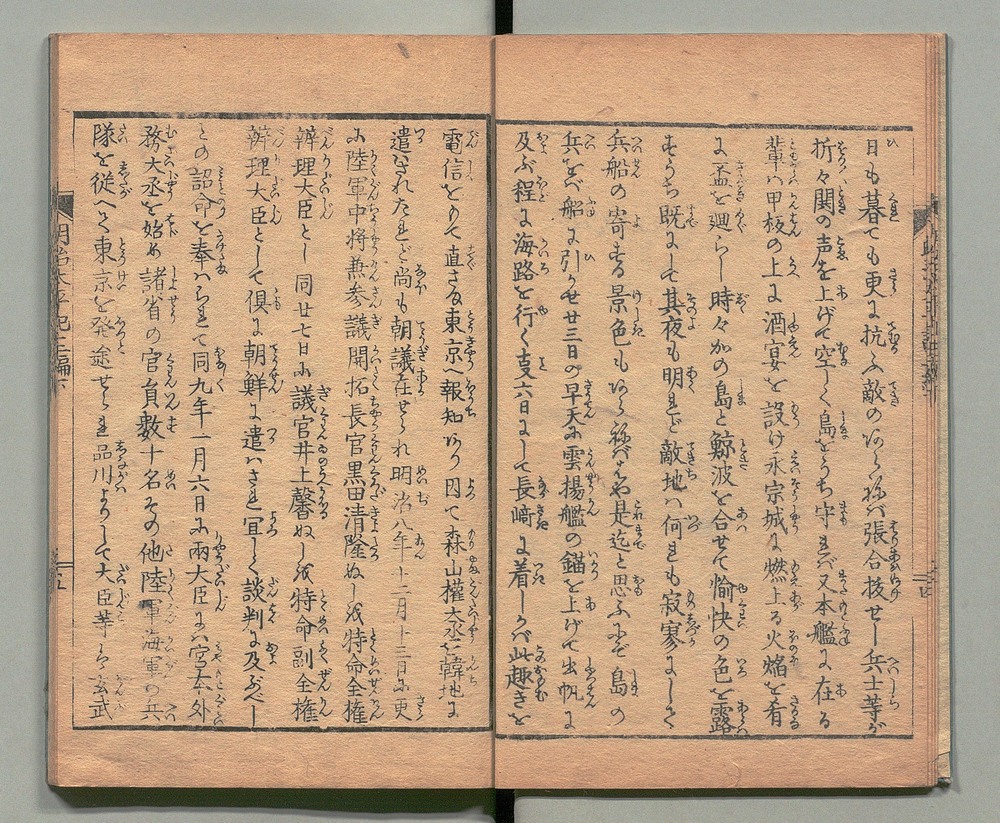 日も暮ても更に抗ふ敵のあらねバ張合抜せし兵士等が
折々閧の声を上げて空しく島をうち守れバ又本艦に在る
輩ハ甲板の上に酒宴を設け永宗城に燃上る火焔を肴
に盃を廻らし時々加の島と鯨波を合せて愉快の色を露
すうち既にして其夜も明れど敵地ハ何れも寂寥として
兵船の寄する景色もあらねばや是迄と思ふにぞ島の
兵をべ船に引かせ廿三日の早天に雲揚艦の錨を上げて出帆に
及ぶ程に海路を行く支六日にして長﨑に着しかバ此趣きを
電信をもて直さま東京へ報知あり因て森山權大丞を韓地に
遣ハされたれど尚も朝議在せられ明治八年十二月十三日に更
に陸軍中将兼参議開拓長官黒田清隆ぬしを特命全権
辨理大臣とし同廿七日に議官井上馨ぬしを特命副全権
辨理大臣として倶に朝鮮に遣ハされ宜しく談判に及ぶべし
との詔命を奉ハられて同九年一月六日に両大臣にハ宮本外
務大丞を始め諸省の官員数十名その他陸軍海軍の兵
隊を従へて東京を発途せられ品川よりして大臣等ハ玄武
明治太平記三編下
五